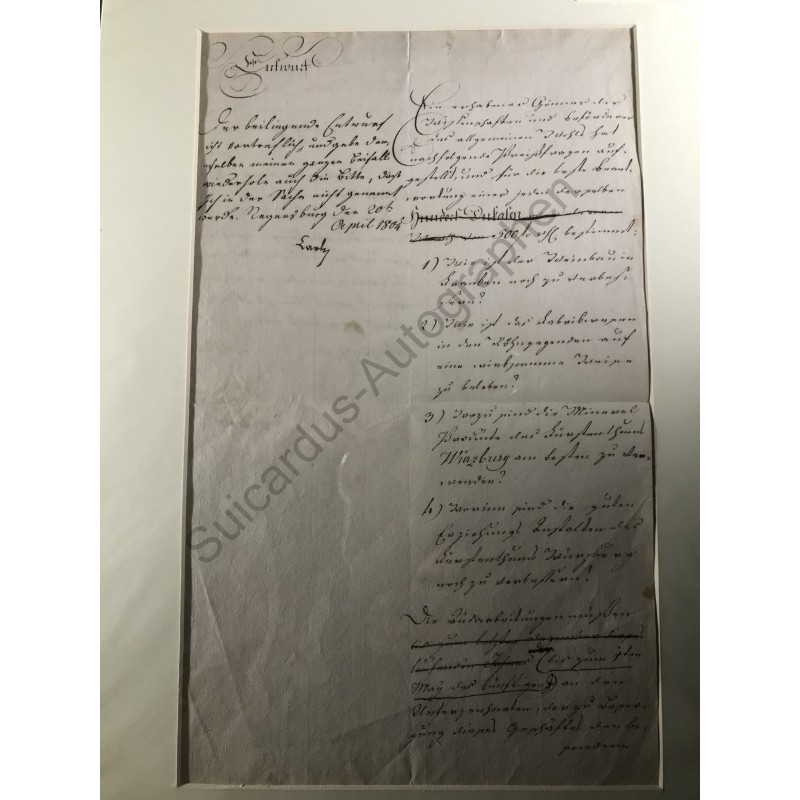 Entwurf
Der beiliegende Entwurf
ist vortreflich, und gebe dem-
selben meinen ganzen Beifall
wiederhole auch die Bitte, dass
ich in der Sache nicht genennt
werde. Regensburg den 20t
April 1804
Carl
Ein erhabener Gönner der
Wissenschaften und Beförderer
des allgemeinen Wohls hat
nachfolgende Preisfragen auf-
gestellt, und für die beste Beant-
wortung einer jeden derselben
Hundert Dukaten
500 fl. bestimmt:
1) Wie ist der Weinbau in
Franken noch zu verbes-
sern?
2) Wie ist das Fabrikwesen
in den Röhngegenden auf
eine wirksamme Weise
zu beleben?
3) Wozu sind die Mineral
Produkte des Fürstenthums
Würzburg am besten zu ver-
wenden?
4) Worinn sind die guten
Erziehungs Anstalten des
Fürstenthums Würzburg
noch zu verbessern?
Die Ausarbeitungen müssen
bis zum letzten Dezember dieses
laufenden Jahres (bis zum 1ten
May des künftigen) an den
Unterzeichneten, der zu Besor-
gung dieses Geschäftes den be-
sondern
Suicardus-Autographen